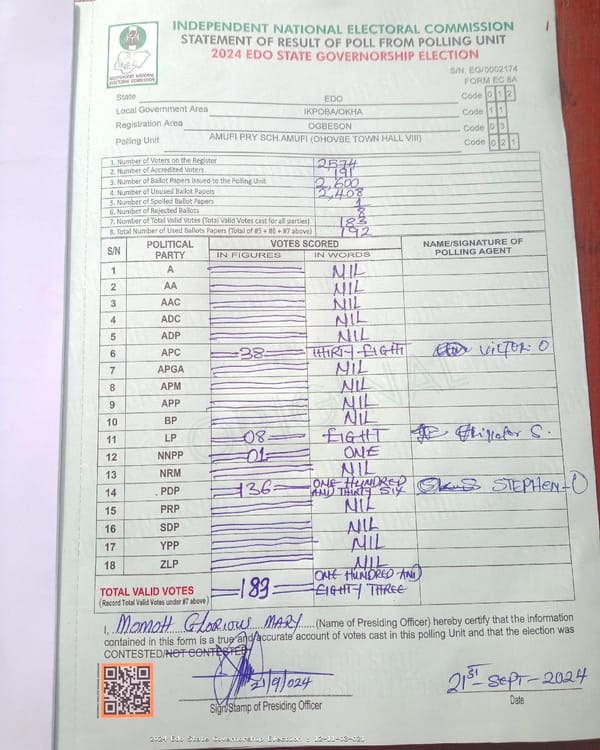 INDEPENDENT NATIONAL ELECTORAL COMMISSION
STATEMENT OF RESULT OF POLL FROM POLLING UNIT
2024 EDO STATE GOVERNORSHIP ELECTION
INEC
INDEPENDENT NATIONAL ELECTORAL COMMISSION
S/N. EG/0002174
FORM EC 8A
State EDO Code 0 1 2
Local Government Area IKPOBA/OKHA Code 1 1
Registration Area OGBESON Code 0 3
Polling Unit AMUFI PRY SCH.AMUFI (OHOVBE TOWN HALL VIII) Code 0 2 1
1. Number of Voters on the Register 2574
2. Number of Accredited Voters 191
3. Number of Ballot Papers issued to the Polling Unit 2,600
4. Number of Unused Ballot Papers 2,408
5. Number of Spoiled Ballot Papers 1
6. Number of Rejected Ballots 8
7. Number of Total Valid Votes (Total Valid Votes cast for all parties) 183
8. Total Number of Used Ballots Papers (Total of #5 + #6 + #7 above) 192
S/N POLITICAL PARTY VOTES SCORED NAME/SIGNATURE OF POLLING AGENT
IN FIGURES IN WORDS
1 A NIL
2 AA NIL
3 AAC NIL
4 ADC NIL
5 ADP NIL
6 APC 38 THIRTY-EIGHT VICTOR O
7 APGA NIL
8 APM NIL
9 APP NIL
10 BP NIL
11 LP 08 EIGHT S.
12 NNPP 01 ONE
13 NRM NIL
14 PDP 136 ONE HUNDRED AND THIRTY SIX STEPHEN-O
15 PRP NIL
16 SDP NIL
17 YPP NIL
18 ZLP NIL
TOTAL VALID VOTES 183 ONE HUNDRED AND EIGHTY THREE
(Record Total Valid Votes under #7 above)
I, MOMOH GLORIOUS MARY (Name of Presiding Officer) hereby certify that the information
contained in this form is a true and accurate account of votes cast in this polling Unit and that the election was
CONTESTED/NOT CONTESTED
21/9/024 21ST-SEPT-2024
Sign/Stamp of Presiding Officer Date
2024 Edo State Governorship Election : 12-11-03-021